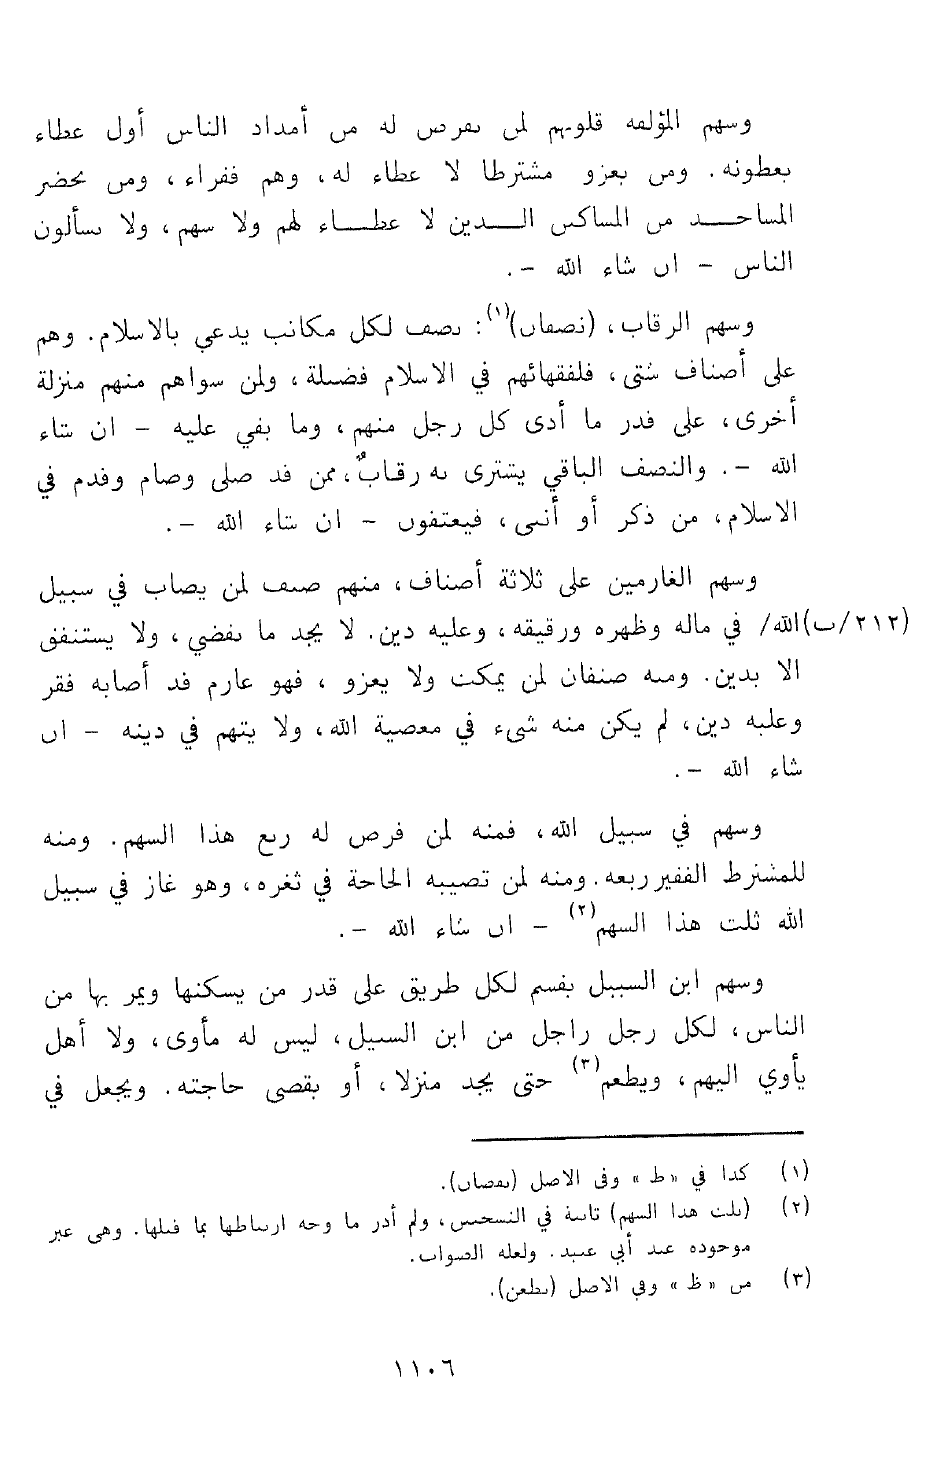 وسهم المؤلفة قلوبهم لمن يفرض له من أمداد الناس أول عطاء
يعطونه. ومن يغزو مشترطا لا عطاء له، وهم فقراء، ومن يحضر
المساجد من المساكين الذين لا عطاء لهم ولا سهم، ولا يسألون
الناس - ان شاء الله -.
وسهم الرقاب، (نصفان)(١): نصف لكل مكاتب يدعي بالاسلام. وهم
على أصناف شتى، فلفقهائهم في الاسلام فضيلة، ولمن سواهم منهم منزلة
أخرى، على قدر ما أدى كل رجل منهم، وما بقي عليه - ان شاء
الله -. والنصف الباقي يشترى به رقاب، ممن قد صلى وصام وقدم في
الاسلام، من ذكر أو أنثى، فيعتقون - ان شاء الله -.
وسهم الغارمين على ثلاثة أصناف، منهم صنف لمن يصاب في سبيل
(٢١٢/ب) الله/ في ماله وظهره ورقيقه، وعليه دين. لا يجد ما يقضي، ولا يستنفق
الا بدين. ومنه صنفان لمن يمكث ولا يغزو، فهو غارم قد أصابه فقر
وعليه دين، لم يكن منه شيء في معصية الله، ولا يتهم في دينه - ان
شاء الله -.
وسهم في سبيل الله، فمنه لمن فرض له ربع هذا السهم. ومنه
للمشترط الفقير ربعه. ومنه لمن تصيبه الحاجة في ثغره، وهو غاز في سبيل
الله ثلث هذا السهم(٢) - ان شاء الله -.
وسهم ابن السبيل يقسم لكل طريق على قدر من يسكنها ويمر بها من
الناس، لكل رجل راجل من ابن السبيل، ليس له مأوى، ولا أهل
يأوي اليهم، ويطعم(٣) حتى يجد منزلا، أو يقضى حاجته. ويجعل في
(١) كذا في «ط» وفي الاصل (نقصان).
(٢) (ثلث هذا السهم) ثابتة في النسختين، ولم أدر ما وجه ارتباطها بما قبلها. وهي غير
موجوده عند أبي عبيد. ولعله الصواب.
(٣) من «ظ» وفي الاصل (يطعن).
١١٠٦